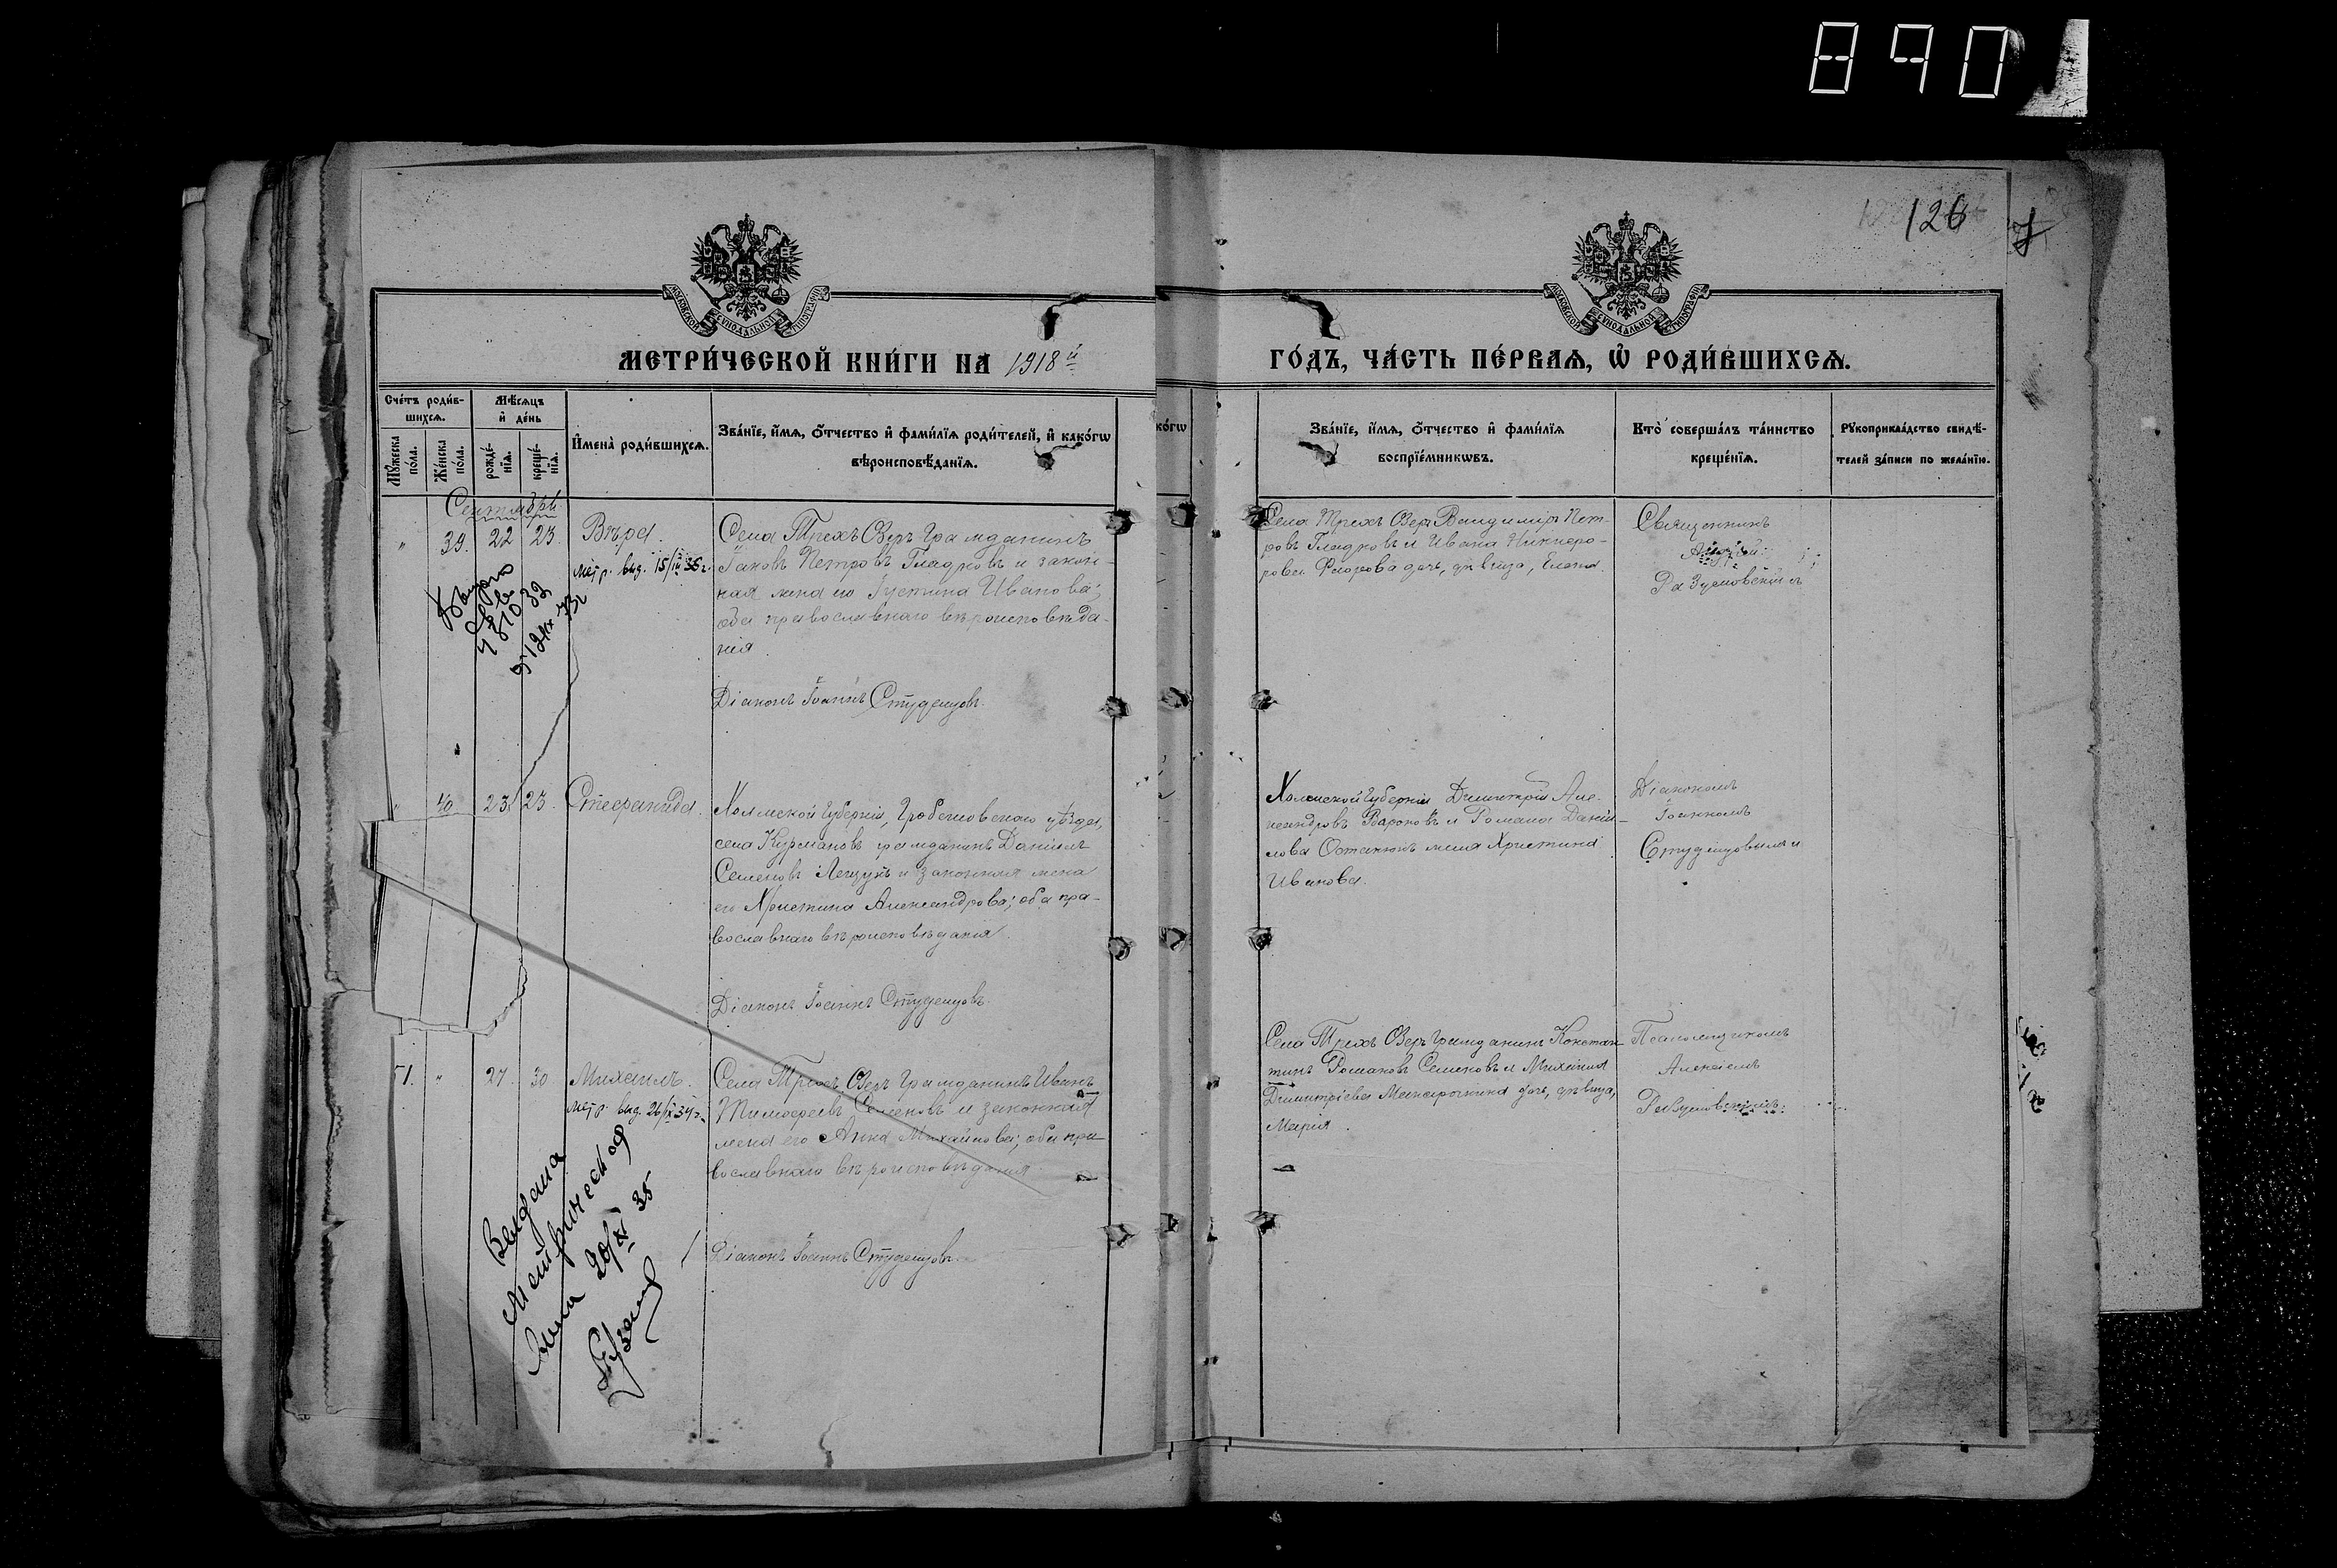 890
126
МОСКОВСКОЙ СѴНОДАЛЬНОЙ ТИПОГРАФІИ
МОСКОВСКОЙ СѴНОДАЛЬНОЙ ТИПОГРАФІИ
МЕТРИ́ЧЕСКОЙ КНИ́ГИ НА 1918й
ГО́ДЪ, ЧА́СТЬ ПЕ́РВАѦ, Ѡ РОДИ́ВШИХСѦ.
Сче́тъ роди́в-
шихсѧ.
Мꙋ́жеска по́ла.
Же́нска по́ла.
Мѣ́сѧцъ
и҆ де́нь
рожде́-
нїѧ.
креще́-
нїѧ.
И҆мена̀ роди́вшихсѧ.
Зва́нїе, и҆́мѧ, ѻ҆́тчество и҆ фами́лїѧ роди́телей, и҆ како́гѡ
вѣроисповѣ́данїѧ.
ко́гѡ
Зва́нїе, и҆́мѧ, ѻ҆́тчество и҆ фами́лїѧ
воспрїе́мникѡвъ.
Кто̀ соверша́лъ та́инство
креще́нїѧ.
Рꙋкоприкла́дство свидѣ́-
телей за́писи по жела́нїю.
Сентябрь.
" 39. 22 23. Вѣра.
метр. выд. 15/III 35 г.
Села Трехъ Озеръ гражданинъ
Іаковъ Петровъ Гладковъ и закон-
ная жена его Іустина Иванова;
оба православнаго вѣроисповѣда-
нія.
Діаконъ Іоаннъ Студенцовъ.
Села Трехъ Озеръ Владимiръ Пет-
ровъ Гладковъ и Ивана Никифо-
рова Флорова дочь, дѣвица, Елена.
Священникъ
Андрей
Разумовскій
" 40 23 23. Стефанида.
Холмской губерніи, Грубешовскаго уѣзда,
села Курмановъ гражданинъ Даніилъ
Семеновъ Лещукъ и законная жена
его Христина Александрова; оба пра-
вославнаго вѣроисповѣданія.
Діаконъ Іоаннъ Студенцовъ.
Холмской губерніи Димитрій Але-
ксандровъ и Романа Даніи-
лова жена Христина
Иванова.
Діакономъ
Іоанномъ
Студенцовымъ
51. " 27. 30 Михаилъ.
метр. выд. 26/IX 34 г.
Села Трехъ Озеръ гражданинъ Иванъ
Тимофеевъ Семеновъ и законная
жена его Анна Михайлова; оба пра-
вославнаго вѣроисповѣданія.
Діаконъ Іоаннъ Студенцовъ.
Села Трехъ Озеръ гражданинъ Констан-
тинъ Романовъ Семеновъ и Михаила
Димитріева дочь, дѣвица,
Марія.
Псаломщикомъ
Алексіемъ
Выдана
20/XI 35